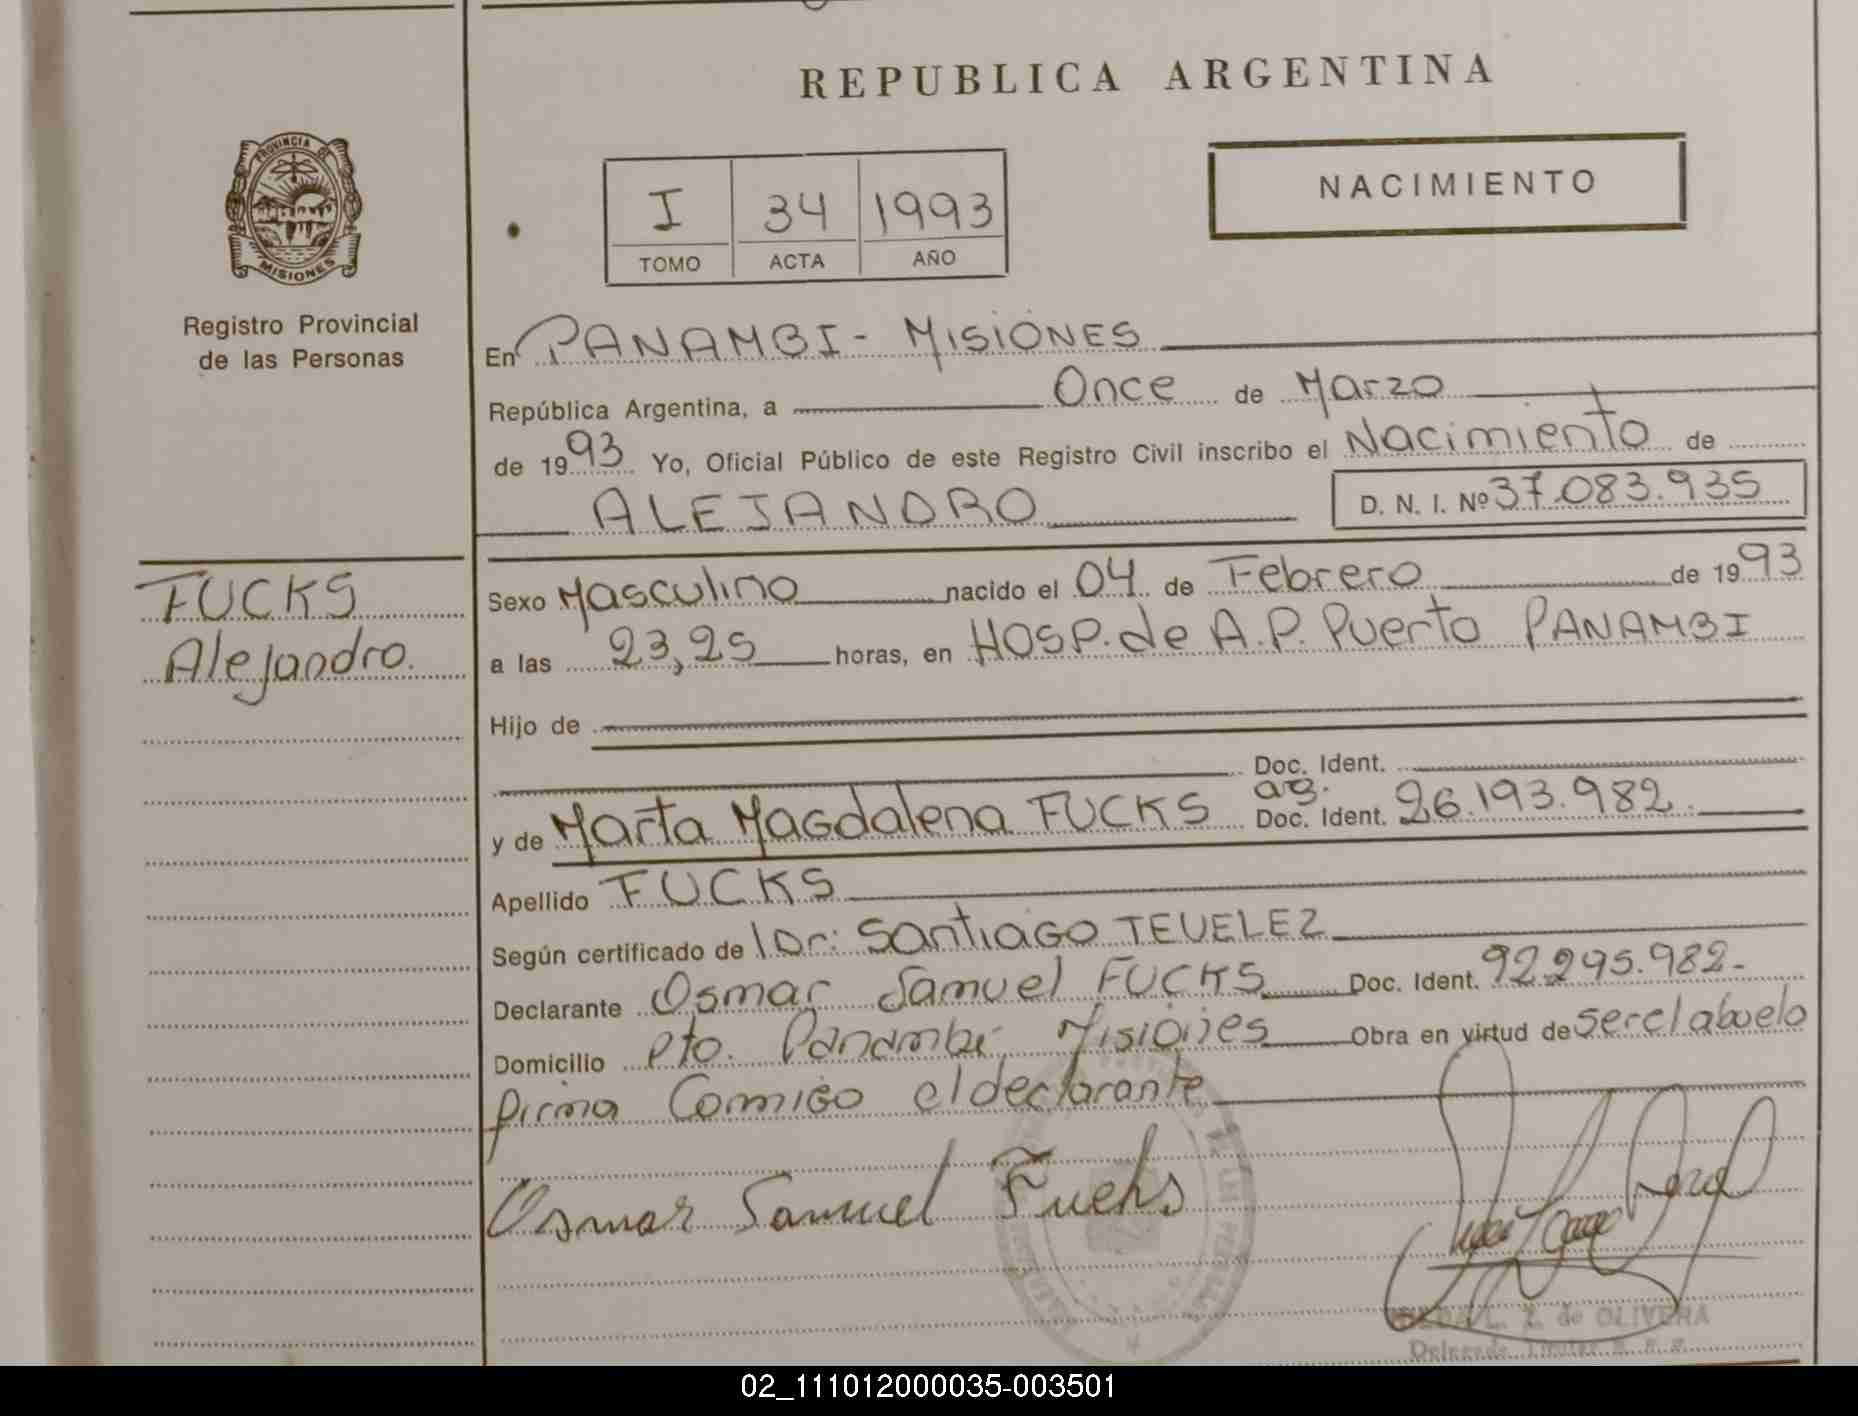 REPUBLICA ARGENTINA
PROVINCIA DE MISIONES
Registro Provincial
de las Personas
I 34 1993
TOMO ACTA AÑO
NACIMIENTO
En PANAMBI - MISIONES
República Argentina, a Once de Marzo
de 1993 Yo, Oficial Público de este Registro Civil inscribo el Nacimiento de
ALEJANDRO D. N. I. Nº 37.083.935
FUCKS
Alejandro.
Sexo Masculino nacido el 04 de Febrero de 1993
a las 23,25 horas, en HOSP. de A.P. Puerto PANAMBI
Hijo de
Doc. Ident.
y de Marta Magdalena FUCKS Doc. Ident. 26.193.982.
Apellido FUCKS
Según certificado de Dr: Santiago TEVELEZ
Declarante Osmar Samuel FUCKS Doc. Ident. 92.295.982-
Domicilio Pto. Panambi Misiones Obra en virtud de ser el abuelo
firma Conmigo el declarante
Osmar Samuel Fucks
L. Z. de OLIVERA
02_111012000035-003501